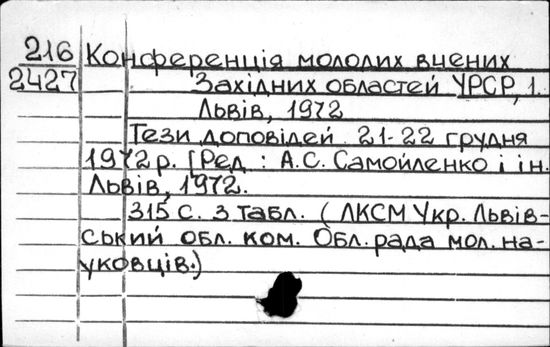 216 Конференція молодих вчених
2427 Західних областей УРСР, 1.
Львів, 1972
Тези доповідей 21-22 грудня
1972 р. [Ред : А.С. Самойленко і ін.
Львів, 1972.
315 с. з табл. (ЛКСМ Укр. Львів-
ський обл. ком. Обл. рада мол. на-
уковців.)